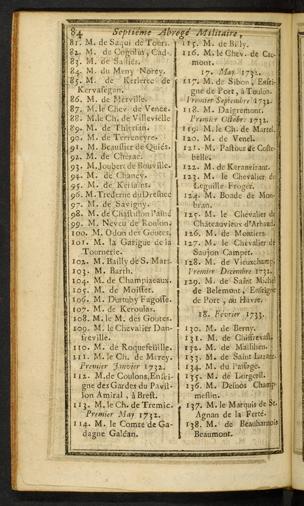 84 Septiéme Abregé Militaire,
81. M. de Saqui de Tours.
82. M. de Cogolin, Cad.
83. M. de Sallies.
84. M. du Meny Norey.
85. M. de Kerierec de
Kervasegan.
86. M. de Merville.
87. M. le Chev. de Vence.
88. M. le Ch. de Villevielle
89. M. de
90. M. de Terreneyre.
91. M. Beaussier de
92. M. de Cherzac.
93. M. Joubert de Bouville.
94. M. de Chaney.
95. M. de
96. M. Trederne du
97. M. de Savigny.
98. M. de Chastillon
99. M. Neveu de Roulon.
100. M. Odon des Goutes.
101. M. la Garigue de la
Tournerie.
102. M. Bailly de S. Mars.
103. M. Barth.
104. M. de Champiaeaux.
105. M. de Moisset.
106. M.
107. M. de Keroulas.
108. M. le M. des Goutes.
109. M. le Chevalier Dan-
freville.
110. M. de Roquefeüille.
111. M. le Ch. de Mirey.
Premier Janvier 1732.
112. M. de Coulons, Ensei-
gne des Gardes du Pavil-
lon Amiral, à Brest.
113. M. le Ch. de Tremic.
Premier May 1732.
114. M. le Comte de Ga-
dagne Galéan.
115. M. de Billy.
116. M. le Chev. de Car-
mont.
17. May 1732.
117. M. de Sibon, Ensei-
gne de Port, à Toulon.
Premier Septembre 1732.
118. M. Daigremont.
Premier Octobre 1732.
119. M. le Ch. de Martel.
120. M. de Venel.
121. M. Pastour de Coste-
belle.
122. M. de Keraneirant.
123. M. le Chevalier de
Leguille Froger.
124. M. Boade de Mon-
bran.
125. M. le Chevalier de
Châteauvieux d'Arbaud.
126. M. de Montiers
127. M. le Chevalier de
Saujon Campet.
128. M. de Vieuxchamp.
Premier Decembre 1732.
129. M. de Saint Michel
de Belemont, Enseigne
de Port, au Havre.
18. Février 1733.
130. M. de Berny.
131. M. de
132. M. de Maisillieu.
133. M. de Saint Lazare.
134. M. du Passage.
135. M. de Lorgeril.
136. M. Desnos Champ-
meslin.
137. M. le Marquis de St.
Agnan de la Ferté.
138. M. de Beauharnois
Beaumont.